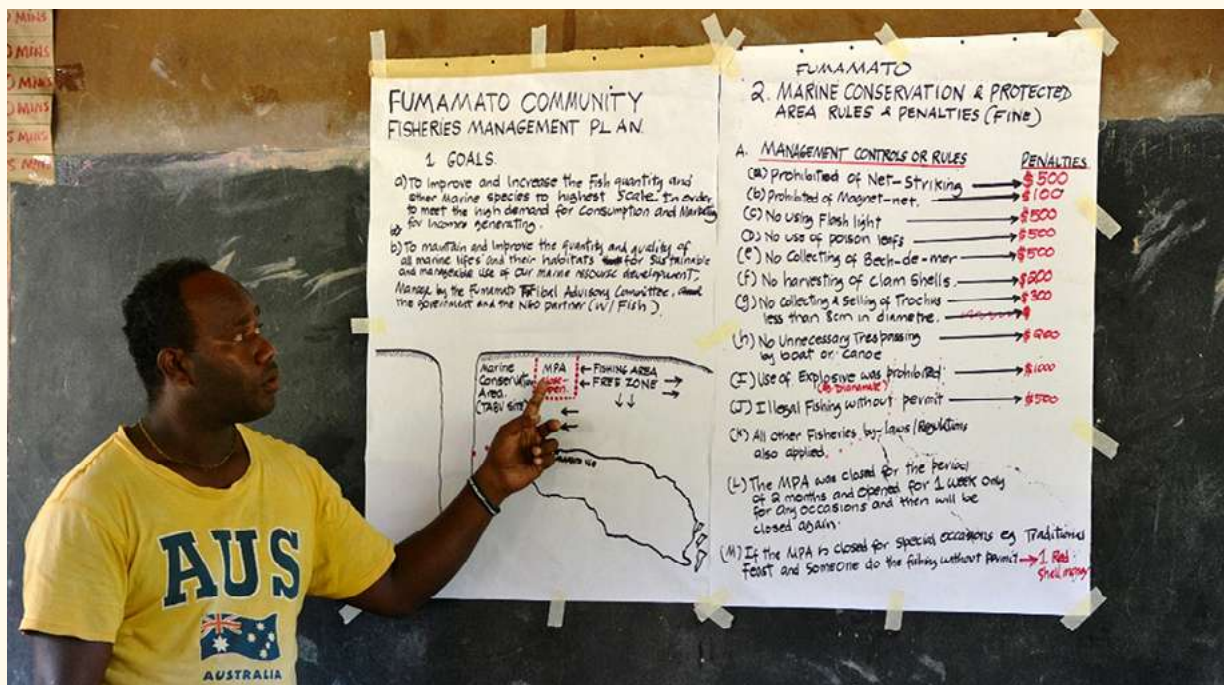 MINS
MINS
MINS
MINS
5 MINS
5 MINS
FUMAMATO COMMUNITY
FISHERIES MANAGEMENT PLAN
1 GOALS.
a) To Improve and Increase the Fish quantity and
other Marine species to highest Scale. In order
to meet the high demand for consumption and Marketing
for Incomes generating.
b) To maintain and Improve the quantity and quality of
all marine lifes and their habitats for sustainable
and manageable use of our marine resourse development.
Manage by the Fumamato Tribal Advisory Committee,
the government and the NGO partner (W/Fish).
Marine
Conservation
Area.
(TABU SITE)
MPA
Close-
Open.
← FISHING AREA
← FREE ZONE →
FUMAMATO
2. MARINE CONSERVATION & PROTECTED
AREA RULES & PENALTIES (FINE)
A. MANAGEMENT CONTROLS OR RULES PENALTIES
(a) Prohibited of Net-Striking → $500
(b) Prohibited of Magnet-net. → $100
(c) No using Flash light → $500
(D) No use of poison leafs → $500
(e) No Collecting of Bech-de-mer → $500
(f) No harvesting of clam Shells. → $200
(g) No collecting & Selling of Trochus → $300
less than 8cm in diametre.
(h) No Unnecessary Trespassing → $200
by boat or canoe
(I) Use of Explosive was prohibited → $1000
(J) Illegal Fishing without permit → $500
(K) All other Fisheries by-laws/Regulations
also applied.
(L) The MPA was closed for the period
of 2 months and opened for 1 week only
for any occasions and then will be
closed again.
(M) If the MPA is closed for special occasions eg Traditional
feast and someone do the fishing without permit → 1 Red
Shell money
AUS
AUSTRALIA